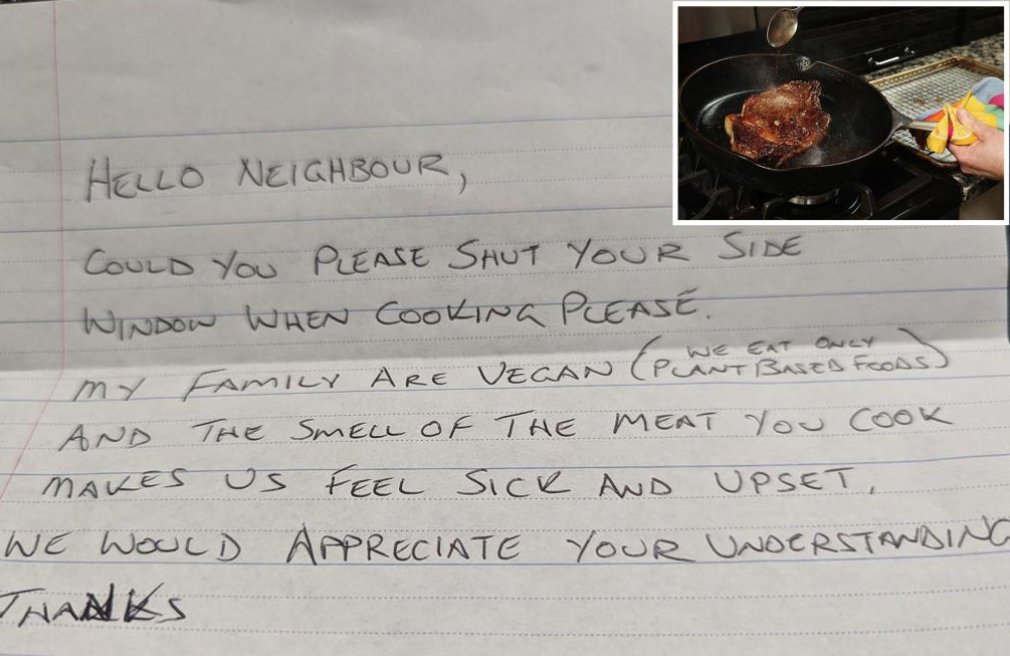 HELLO NEIGHBOUR,
COULD YOU PLEASE SHUT YOUR SIDE
WINDOW WHEN COOKING PLEASE.
MY FAMILY ARE VEGAN (WE EAT ONLY
PLANT BASED FOODS)
AND THE SMELL OF THE MEAT YOU COOK
MAKES US FEEL SICK AND UPSET,
WE WOULD APPRECIATE YOUR UNDERSTANDING
THANKS